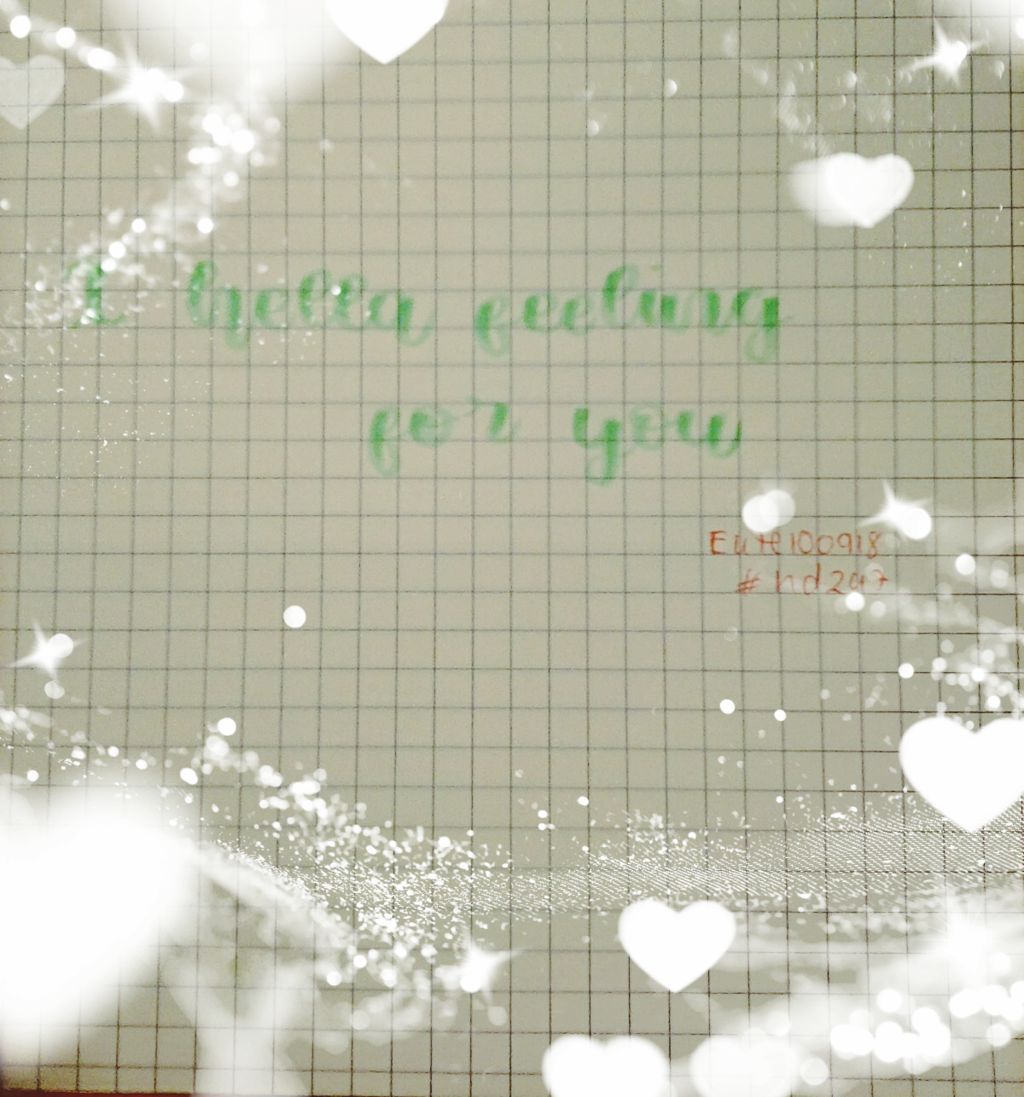 I hella feeling
for you
Eute100918
#hd247